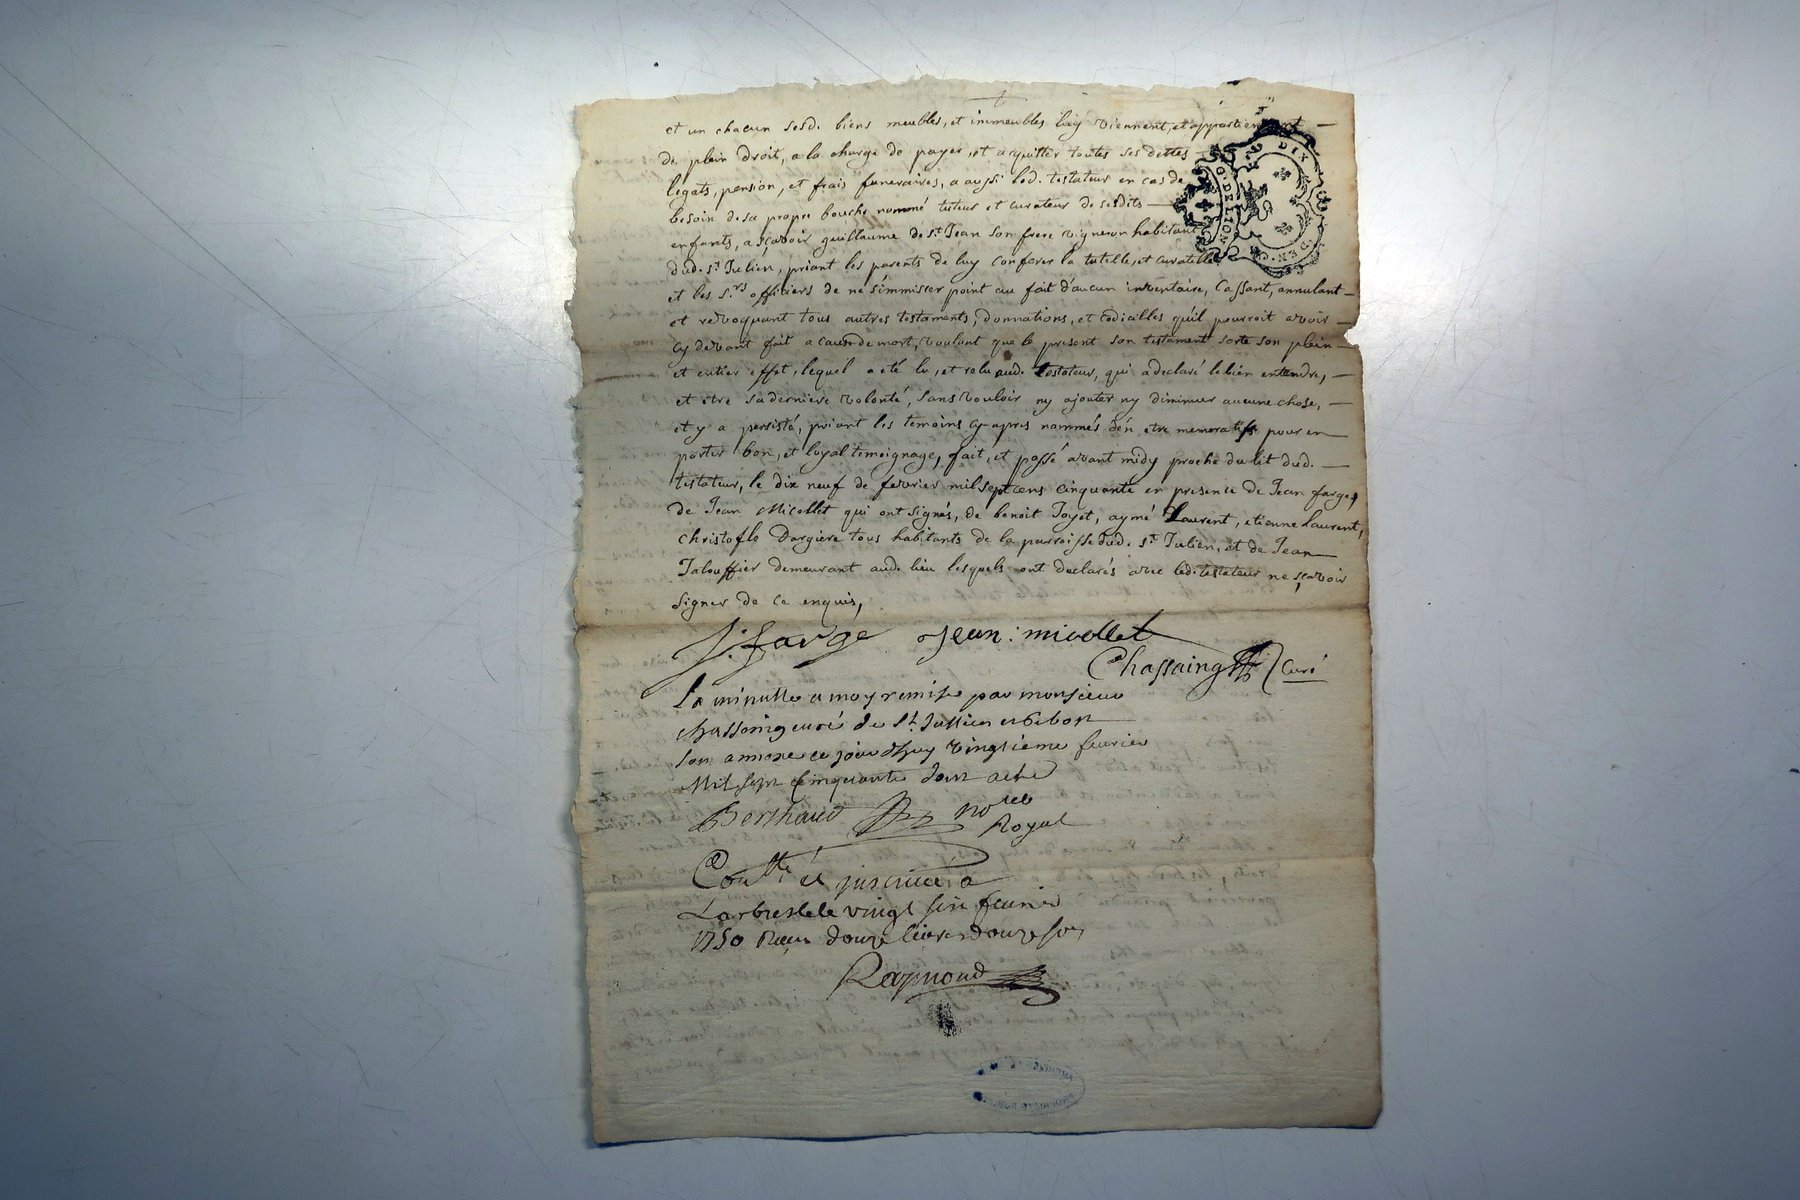 et un chacun sesd. biens meubles, et immeubles luy viennent, et appartiennent
de plein droit, a la charge de payer, et acquitter toutes ses dettes
legats, pension, et frais funeraires, a aussi led. testateur en cas de
besoin de sa propre bouche nommé tuteur et curateur de sesdits
enfants, a sçavoir guillaume de st. Jean son frere vigneron habitant
dud. st. Julien, priant les parents de luy conferer la tutelle, et curatelle
et les s.rs officiers de ne s'immiscer point au fait d'aucun inventaire, Cassant, annulant
et revoquant tous autres testaments, donnations, et codicilles qu'il pourroit avoir
cy devant fait a cause de mort, voulant que le present son testament sorte son plein
et entier effet, lequel a eté lu, et relu aud. testateur, qui a declaré le bien entendre,
et etre sa derniere volonté, sans vouloir ny ajouter ny diminuer aucune chose,
et y a persisté, priant les temoins cy apres nommés d'en etre memoratifs pour en
porter bon, et loyal temoignage, fait, et passé avant midy proche du lit dud.
testateur, le dix neuf de fevrier mil sept cens cinquante en presence de Jean farge,
de Jean Micollet qui ont signés, de benoit Joyet, aymé Laurent, etienne Laurent,
christofle Dargiere tous habitants de la parroisse dud. st. Julien, et de Jean
Jalouffier demeurant aud. lieu lesquels ont declarés avec led. testateur ne sçavoir
signer de ce enquis,
J: farge Jean: micollet
Chassaing Curé
La minutte a moy remise par monsieur
chassaing curé de st. Jullien
son annexe ce jourdhuy vingtieme feurier
Mil sept Cinquante dont acte
Berthaud no.re
Royal
Con.llé et insinué a
Larbresle le vingt six feurier
1750 Reçu douze livres douze sols
Raymond
DIX
DEN.
G. DE LION